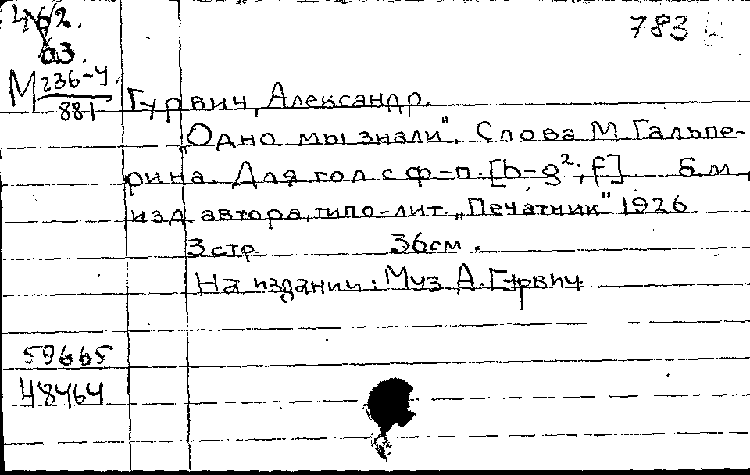 783
162.
63.
М 236-4
881
Гурвич, Александр.
"Одно мы знали". Слова М. Гальпе-
рина. Для гол с ф-п. [b-g²; f] Б.м.,
изд. автора, типо-лит. „Печатник" 1926
3 стр 36см.
На издании: Муз А. Гурвич
59665
48464